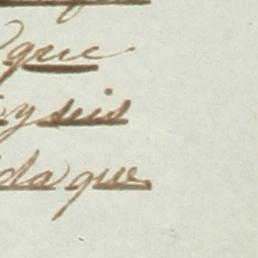 que
y seis
da que